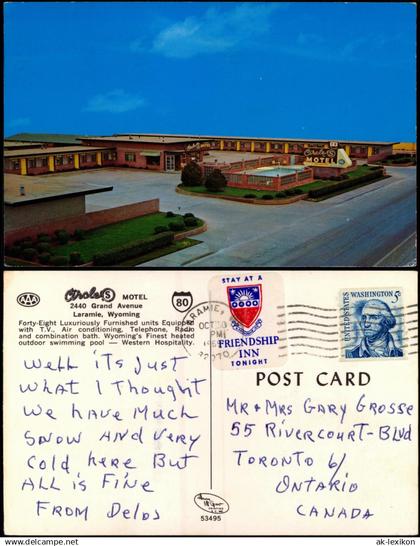 Circle S
MOTEL
AAA
Circle S MOTEL
2440 Grand Avenue
Laramie, Wyoming
80
Forty-Eight Luxuriously Furnished units Equipped
with T.V., Air conditioning, Telephone, Radio
and combination bath. Wyoming's Finest heated
outdoor swimming pool — Western Hospitality.
Well its Just
What I Thought
We have Much
Snow And very
Cold here But
All is Fine
From Delos
STAY AT A
FRIENDSHIP
INN
TONIGHT
LARAMIE
OCT
PM
82070
UNITED STATES
WASHINGTON
5c
POST CARD
Mr + Mrs Gary Grosse
55 Rivercourt-Blvd
Toronto 6/
Ontario
Canada
53495
ak-lexikon
© ak-lexikon.com